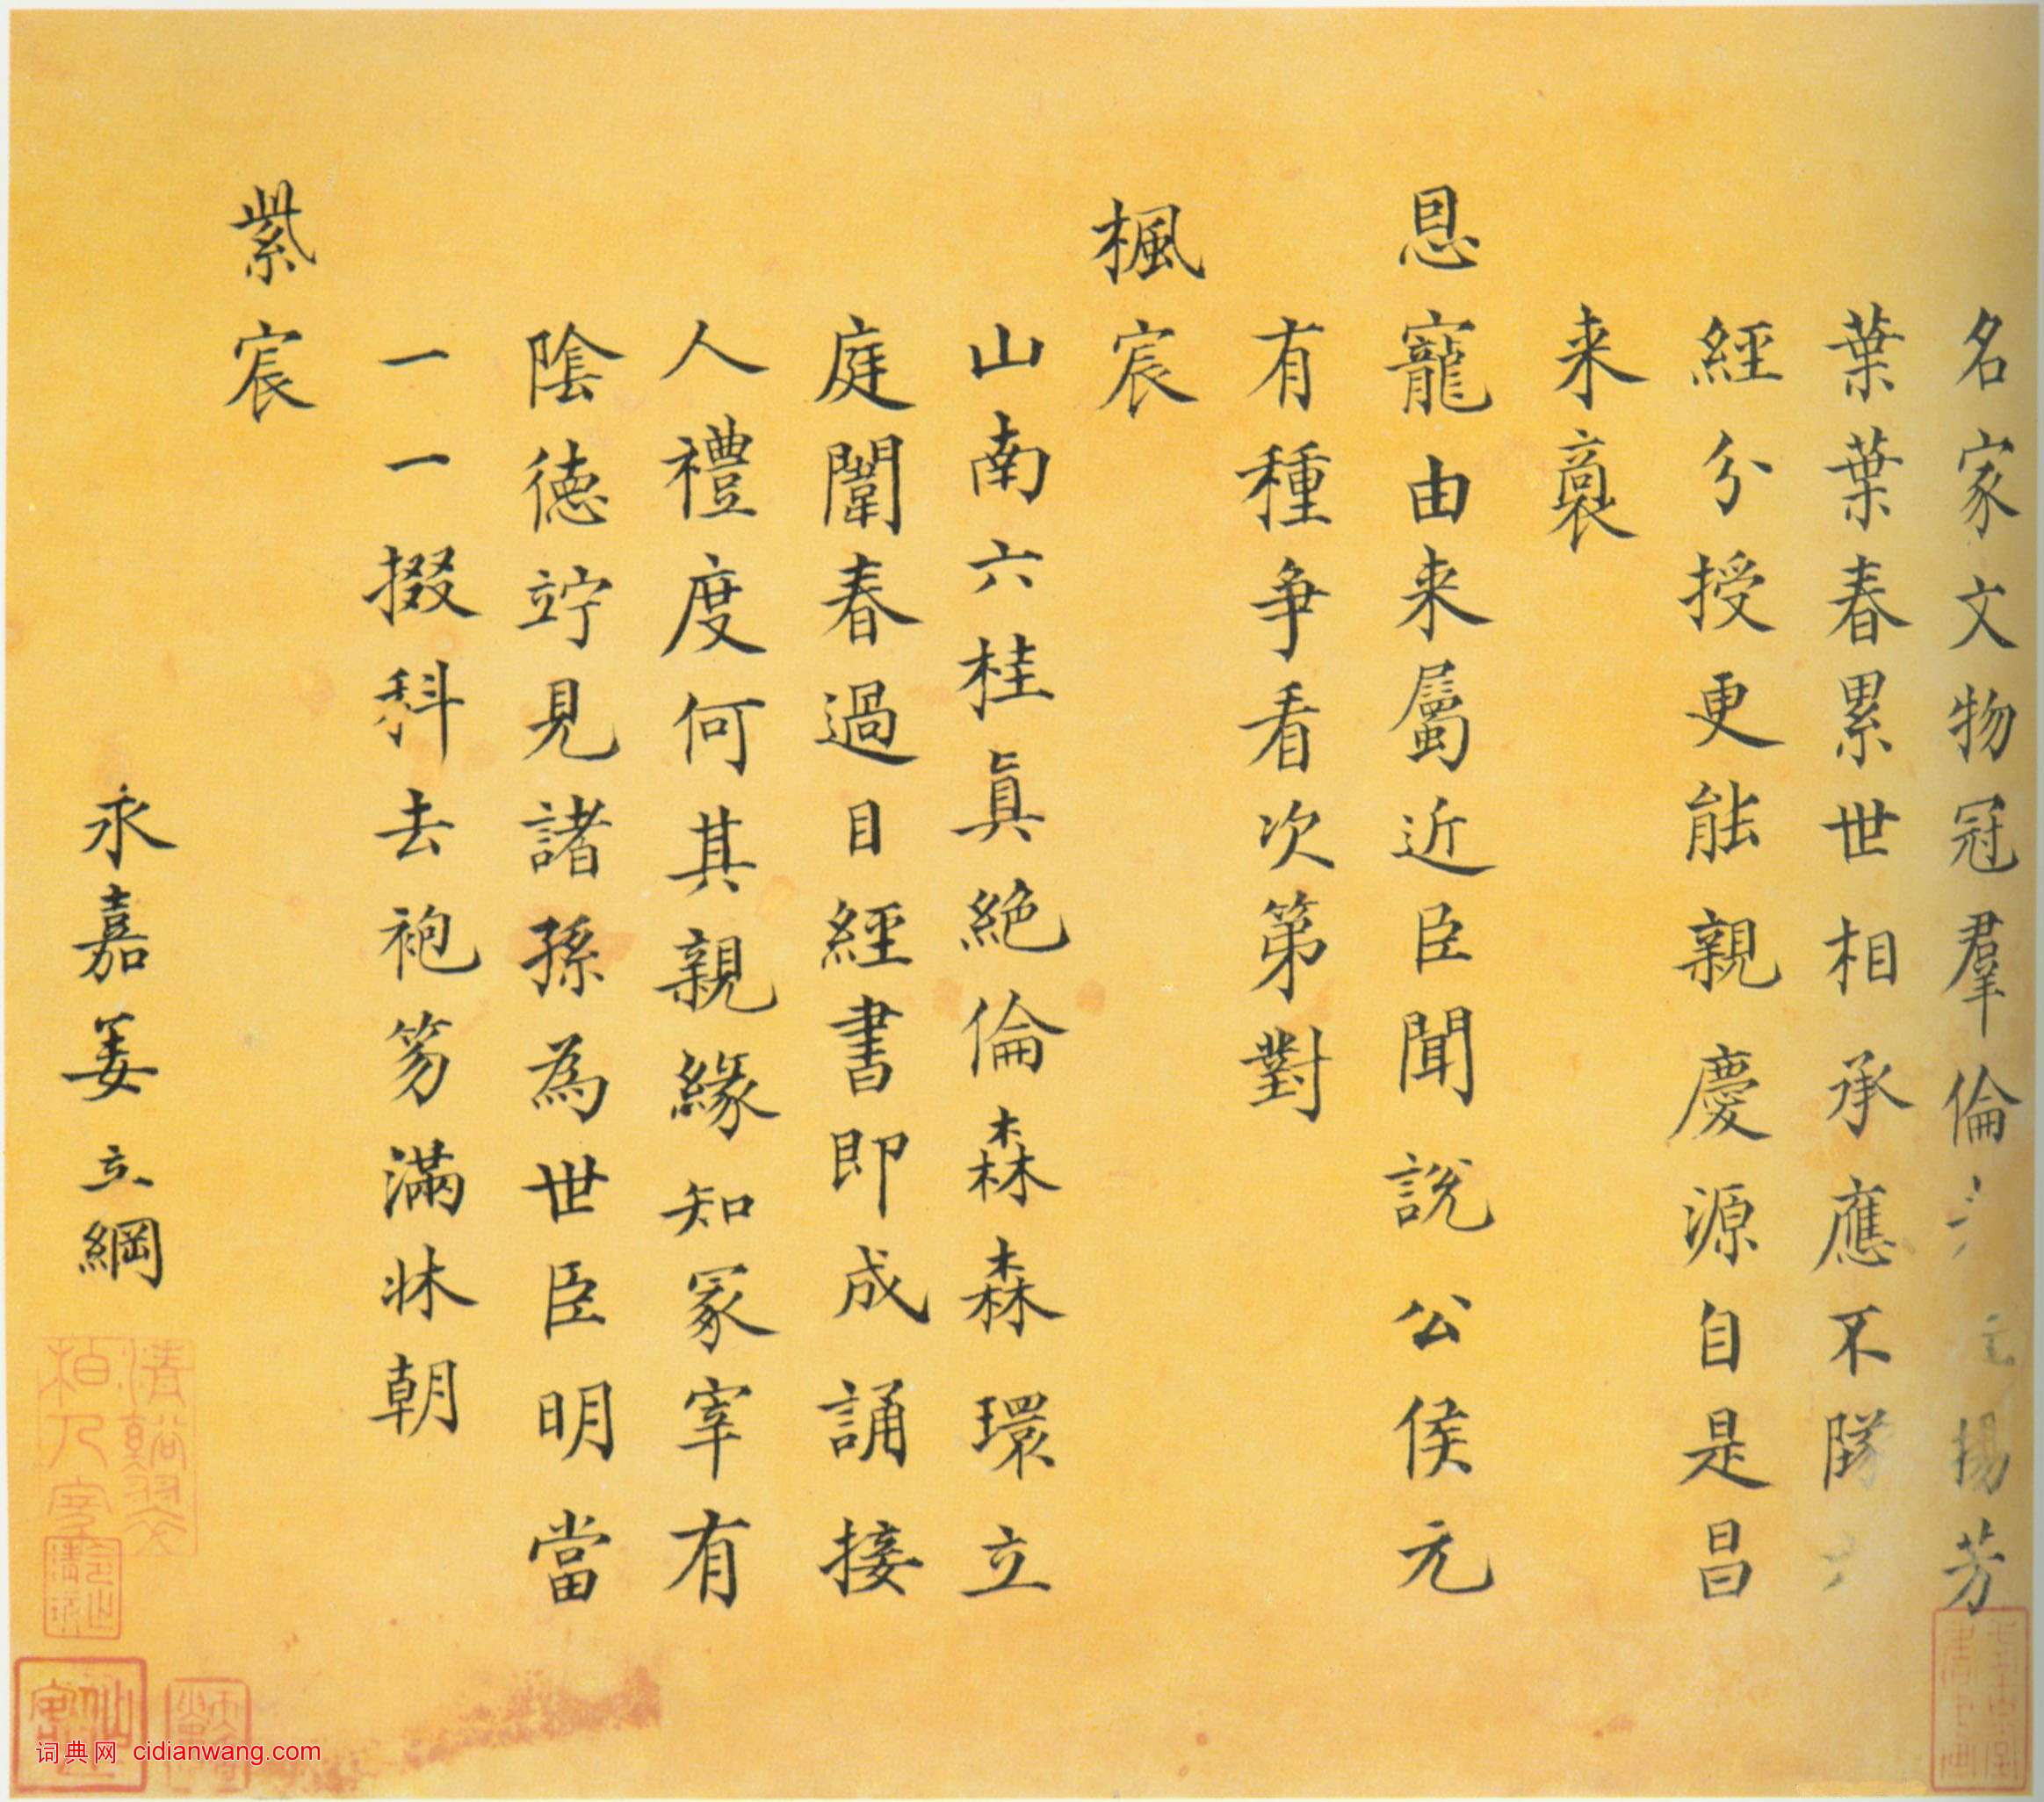 名家文物冠羣倫 揚芳
葉葉春累世相承應不隊
經分授更能親慶源自是昌
来裔
恩寵由来屬近臣聞說公侯元
有種争看次第對
楓宸
山南六桂眞絶倫森森環立
庭闈春過目經書即成誦接
人禮度何其親緣知冢宰有
陰德竚見諸孫為世臣明當
一一掇科去袍笏滿牀朝
紫宸
永嘉姜立綱
词典网 cidianwang.com